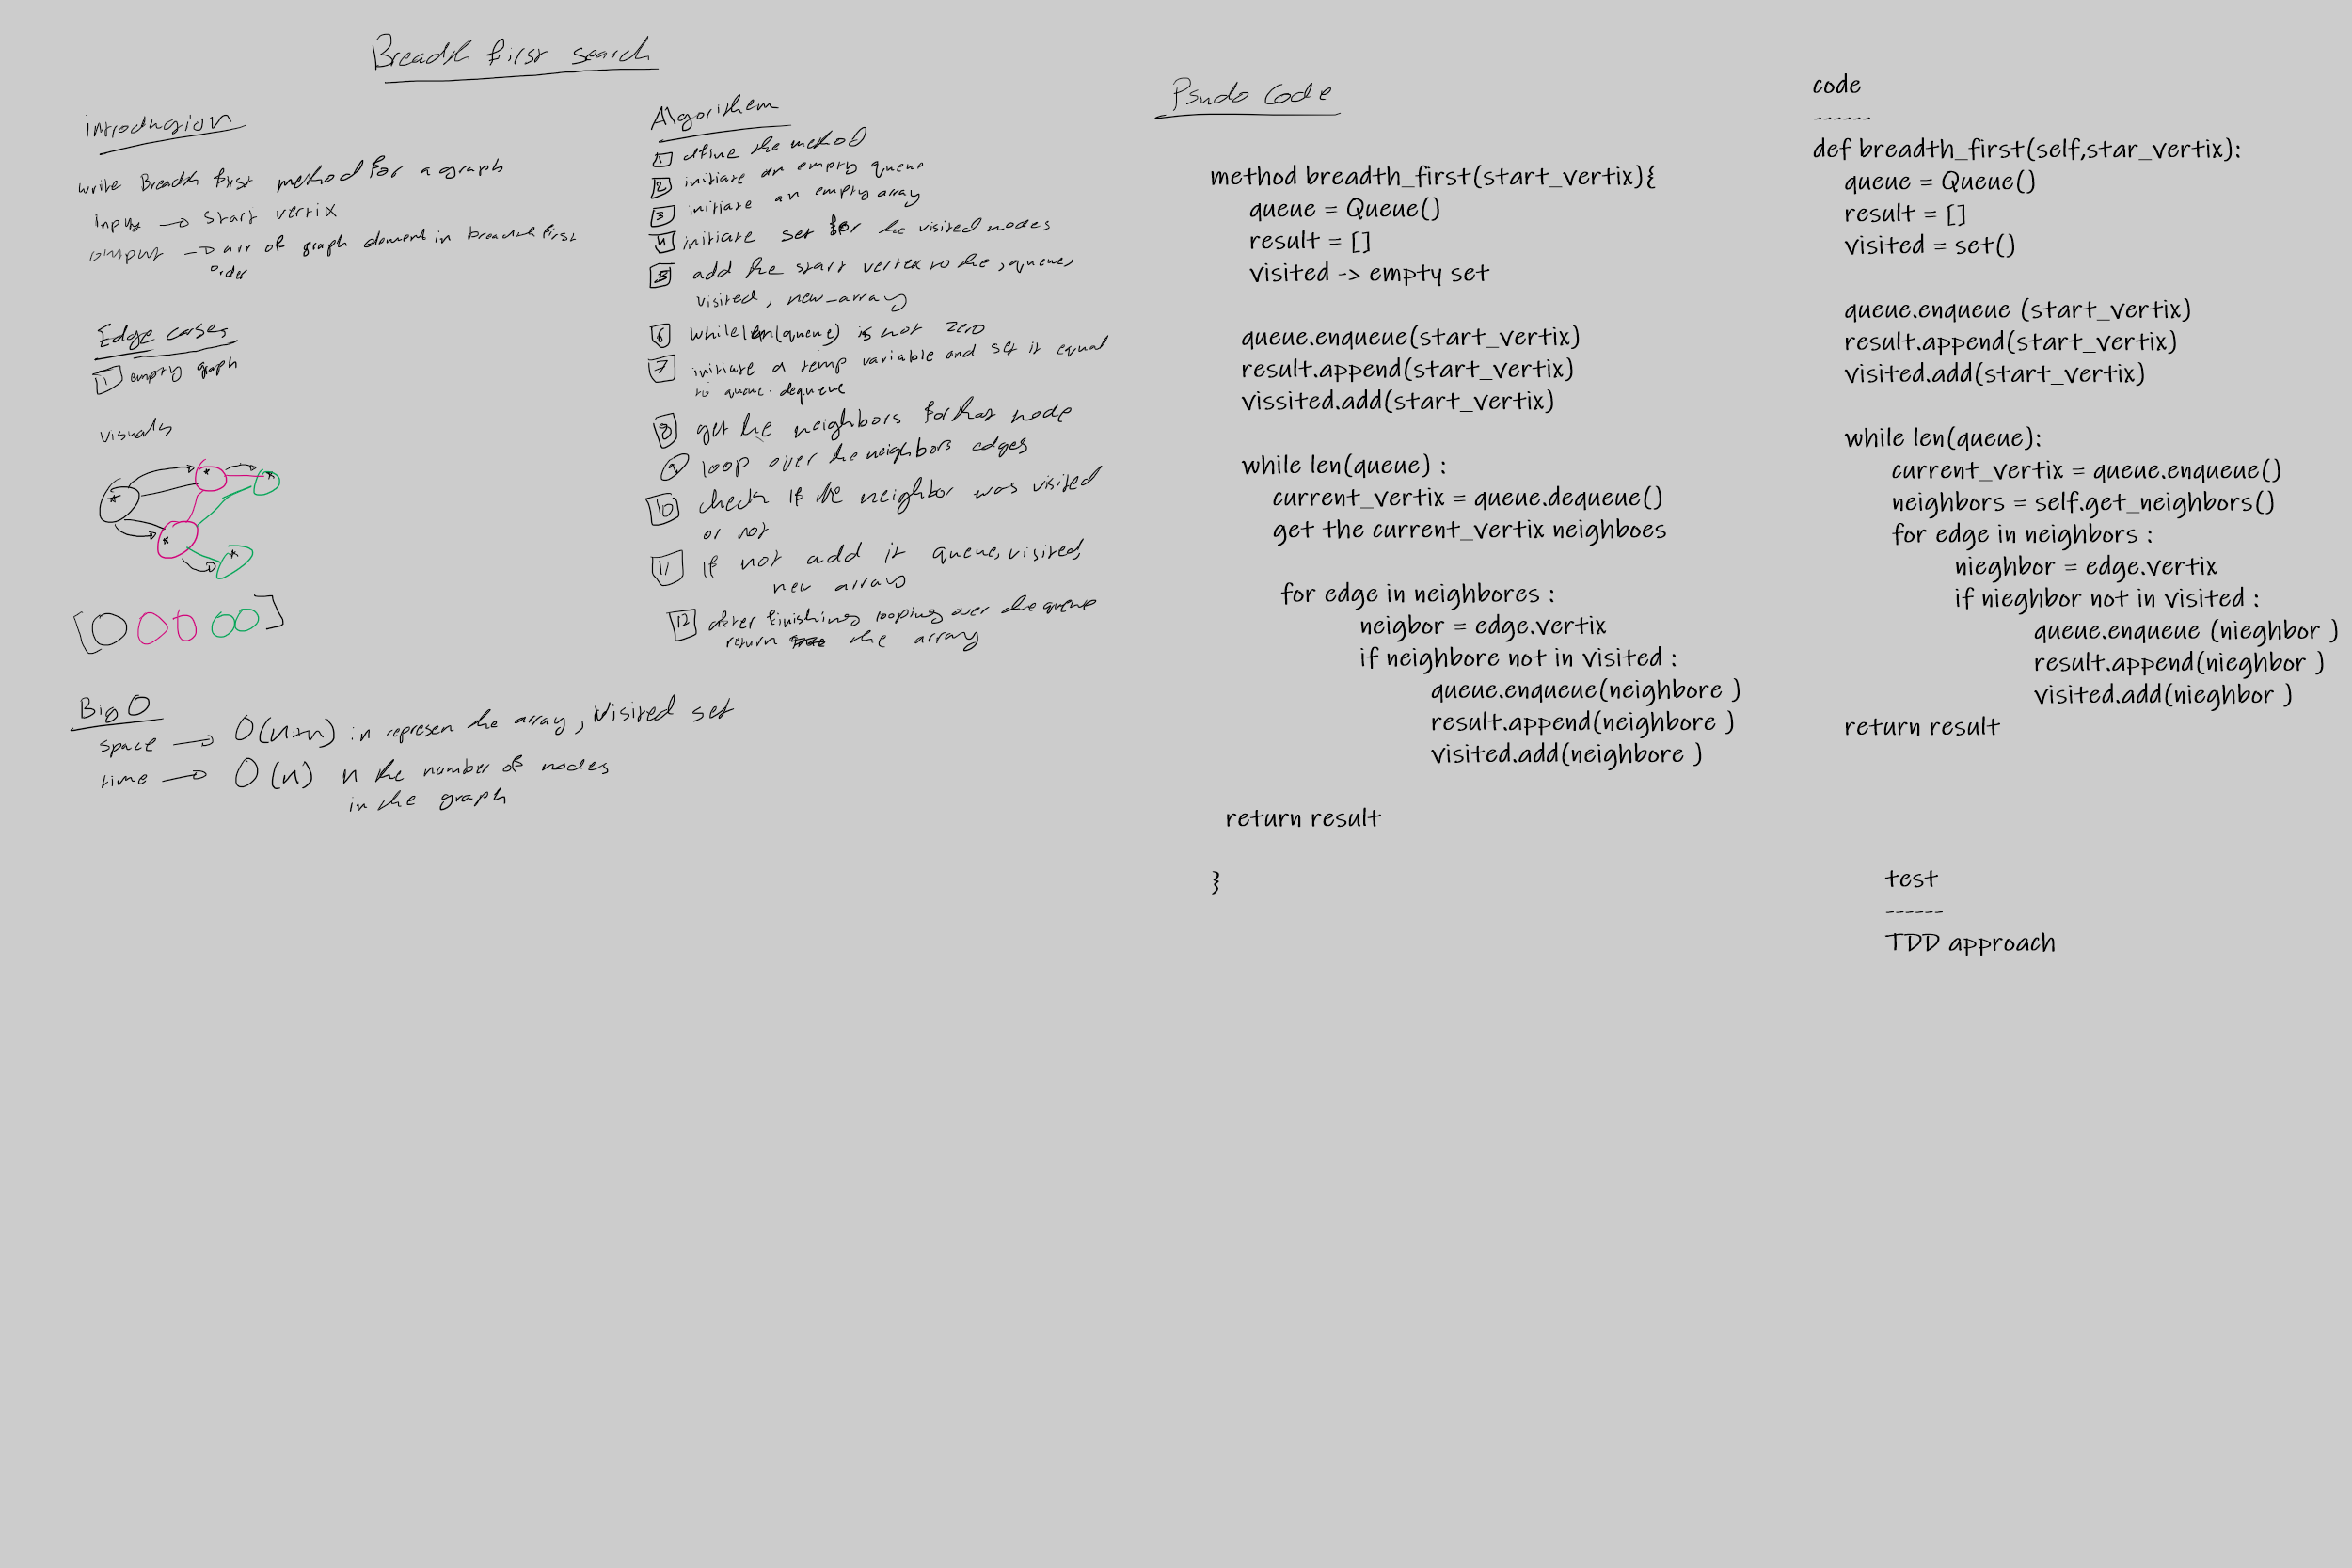 Breadth first search
introduction
write Breadth first method for a graph
Input → start vertix
output → arr of graph element in breadth first
order
Edge cases
1 empty graph
visuals
[ ]
Big O
space → O(n+n) in represen the array, visited set
time → O(n) n the number of nodes
in the graph
Algorithem
1 define the method
2 initiate an empty queue
3 initiate an empty array
4 initiate set for the visited nodes
5 add the start vertex to the, queue,
visited, new_array
6 while len(queue) is not zero
7 initiate a temp variable and set it equal
to queue.dequeue
8 get the neighbors for that node
9 loop over the neighbors edges
10 check if the neighbor was visited
or not
11 if not add it queue, visited,
new array
12 after finishing looping over the queue
return the array
Psudo Code
method breadth_first(start_vertix){
queue = Queue()
result = []
visited -> empty set
queue.enqueue(start_vertix)
result.append(start_vertix)
vissited.add(start_vertix)
while len(queue) :
current_vertix = queue.dequeue()
get the current_vertix neighboes
for edge in neighbores :
neigbor = edge.vertix
if neighbore not in visited :
queue.enqueue(neighbore )
result.append(neighbore )
visited.add(neighbore )
return result
}
code
------
def breadth_first(self,star_vertix):
queue = Queue()
result = []
visited = set()
queue.enqueue (start_vertix)
result.append(start_vertix)
visited.add(start_vertix)
while len(queue):
current_vertix = queue.enqueue()
neighbors = self.get_neighbors()
for edge in neighbors :
nieghbor = edge.vertix
if nieghbor not in visited :
queue.enqueue (nieghbor )
result.append(nieghbor )
visited.add(nieghbor )
return result
test
------
TDD approach